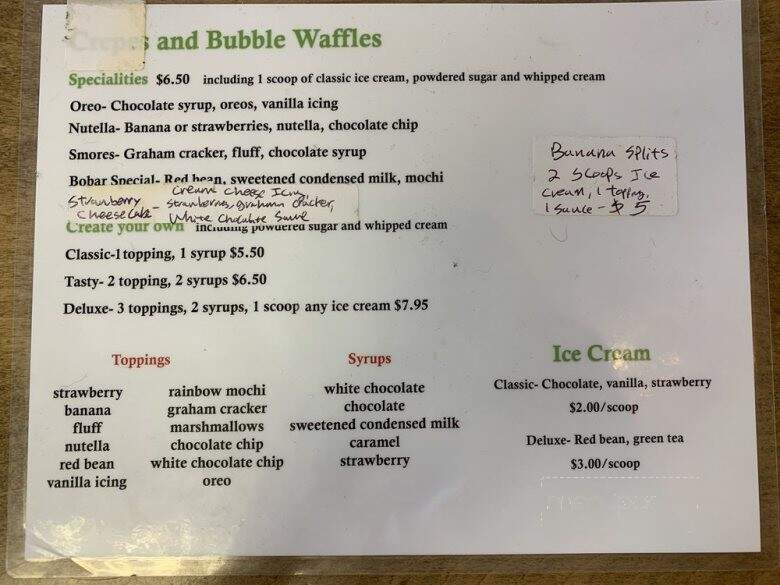 Crepes and Bubble Waffles
Specialities $6.50 including 1 scoop of classic ice cream, powdered sugar and whipped cream
Oreo- Chocolate syrup, oreos, vanilla icing
Nutella- Banana or strawberries, nutella, chocolate chip
Smores- Graham cracker, fluff, chocolate syrup
Bobar Special- Red bean, sweetened condensed milk, mochi
Strawberry Cheese Cake -
Cream Cheese Icing,
strawberries, graham cracker,
White Chocolate Sauce
Create your own including powdered sugar and whipped cream
Classic-1 topping, 1 syrup $5.50
Tasty- 2 topping, 2 syrups $6.50
Deluxe- 3 toppings, 2 syrups, 1 scoop any ice cream $7.95
Banana Splits
2 Scoops Ice
Cream, 1 topping,
1 sauce - $5
Toppings
strawberry
banana
fluff
nutella
red bean
vanilla icing
rainbow mochi
graham cracker
marshmallows
chocolate chip
white chocolate chip
oreo
Syrups
white chocolate
chocolate
sweetened condensed milk
caramel
strawberry
Ice Cream
Classic- Chocolate, vanilla, strawberry
$2.00/scoop
Deluxe- Red bean, green tea
$3.00/scoop